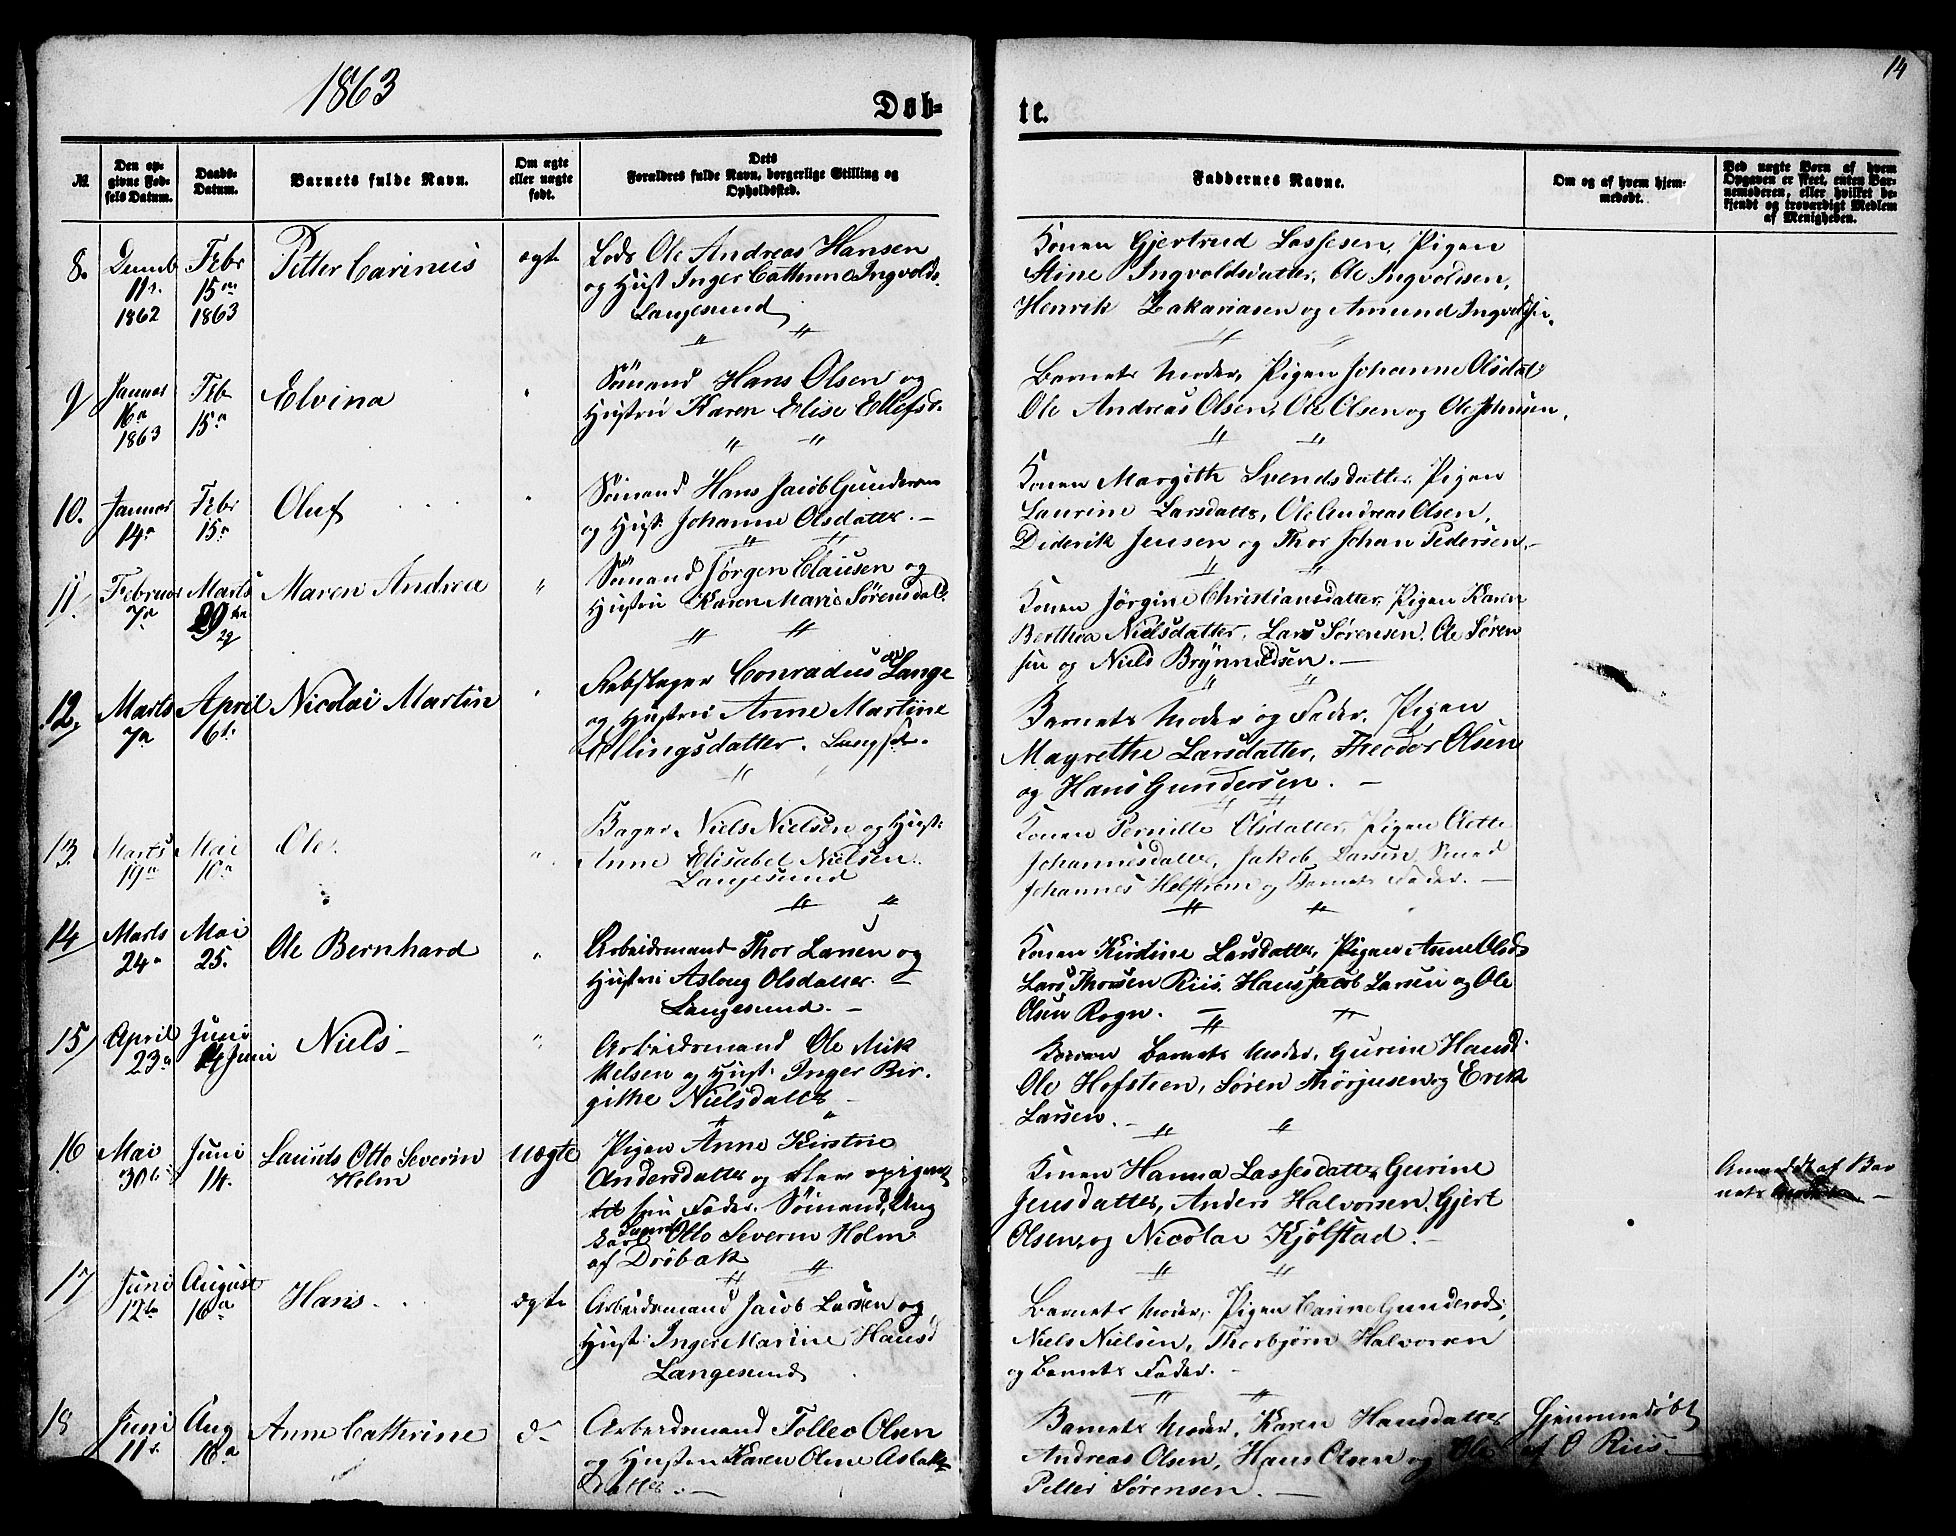 1863
Døb-
te.
14
№
Den op-
givne Fød-
sels Datum.
Daabs-
Datum.
Barnets fulde Navn.
Om ægte
eller uægte
født.
Dets
Forældres fulde Navn, borgerlige Stilling og
Opholdssted.
Faddernes Navne.
Om og af hvem hjem-
medøbt.
Ved uægte Børn af hvem
Opgaven er skeet, enten Bar-
nemoderen, eller hvilket be-
kjendt og troværdigt Medlem
af Menigheden.
8.
11te
1862
Febr
15de
1863
Petter Carinus
ægte
Lods Ole Andreas Hansen
og Hust Inger Cathrine Ingvolds.
Langesund
Konen Gjertrud Lassesen, Pigen
Stine Ingvoldsdatter, Ole Ingvoldsen,
Henrik Zakariasen og Amund Ingvoldsen.
9
Januar
16de
1863
Feb
15de
Elvina
Sømand Hans Olsen og
Hustru Karen Elise Ellefsd.
Barnets Moder, Pigen Johanne Olsdat
Ole Andreas Olsen, Ole Olsen og Ole Johnsen.
10.
Januar
14de
Febr
15de
Oluf
Sømand Hans Jacob Gundersen
og Hust: Johanne Olsdatter. —
Konen Margith Svendsdatter, Pigen
Laurine Larsdatter, Ole Andreas Olsen,
Diderik Jensen og Thor Johan Pedersen. —
11
Februar
7de
Marts
29de
29
Maren Andrea
"
Sømand Jørgen Clausen og
Hustru Karen Marie Sørensdat.
Konen Jørgine Christiansdatter, Pigen Karen
Berthea Nielsdatter, Lars Sørensen, Ole Søren
sen og Niels Brynnildsen. —
12.
Marts
7de
April
6te
Nicolai Martin
Rebslager Conradus Lange
og Hustru Anne Martine
Ellingsdatter.
Barnets Moder og Fader, Pigen
Magrethe Larsdatter, Theodor Olsen
og Hans Gundersen. —
13.
Marts
19de
Mai
10de
Ole.
"
Bager Niels Nielsen og Hust:
Anne Elisabet Nielsen.
Langesund
Konen Pernille Olsdatter, Pigen
Johannesdatter, Jakob Larsen, Smed
Johannes Helstrøm og Barnets Fader. —
14
Marts
24de
Mai
25.
Ole Bernhard
"
Arbeidsmand Thor Larsen og
Hustru Aslaug Olsdatter. —
Langesund. —
Konen Kirstine Larsdatter, Pigen Anne Olsd.
Lars Thorsen Riis, Hans Jacob Larsen og Ole
Olsen Rogn. —
15
April
23de
Juni
14 Juni
Niels —
"
Arbeidsmand Ole Mik
kelsen og Hust: Inger Bir.
githe Nielsdatter —
Barnets Moder, Gurine Hansd.
Ole Hofsteen, Søren Thorjusen og Erik
Larsen. —
16
Mai
30te
Juni
14.
Laurids Otto Severin
Holm
uægte
Pigen Anne Kirstine
Andersdatter og
til sin Fader, Sømand, Ung
karl Laurids Otto Severin Holm
af Drøbak
Konen Hanna Lassesdatter, Gurine
Jensdatter, Anders Halvorsen, Gjert
Olsen, og Nicolai Kjølstad. —
Anmeldt af Bar
nets Moder —
17
Juni
12te
August
16de
Hans.
ægte
Arbeidsmand Jacob Larsen og
Hust: Inger Marine Hansd
Langesund
Barnets Moder, Pigen Carine Gundersd.,
Niels Nielsen, Thorbjørn Halvorsen
og Barnets Fader. —
18
Juni
11te
Aug
16de
Anne Cathrine
do
Arbeidsmand Tollev Olsen
og Hustru Karen Oline Aslak-
datter. —
Barnets Moder, Karen Hansdatter
Andreas Olsen, Hans Olsen og Ole
Petter Sørensen. —
Hjemmedøbt
af O Riis. —